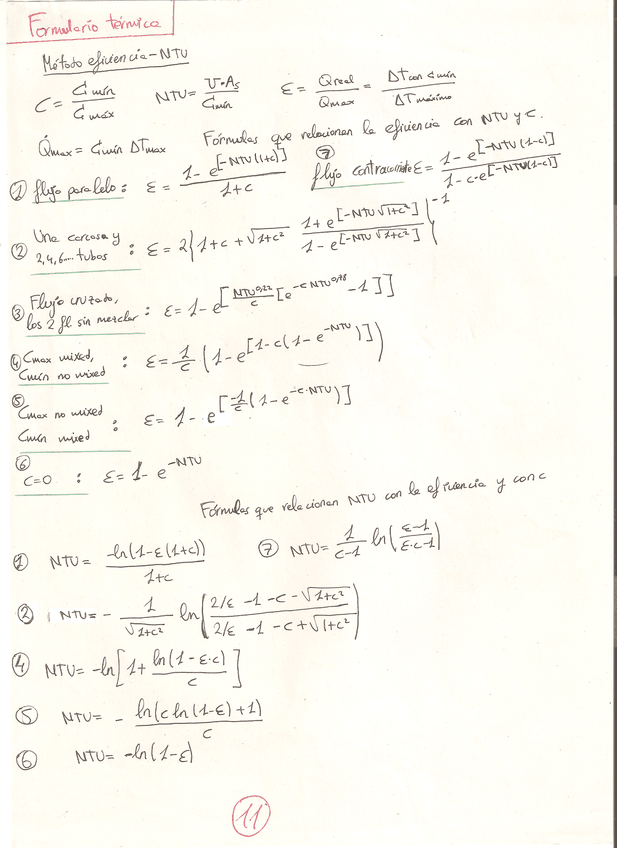 Formulario térmica
Método eficiencia-NTU
C = Ċmín / Ċmáx   NTU = U·As / Ċmín   ε = Qreal / Qmax = ΔT con c mín / ΔT máximo
Q̇max = Ċmín ΔTmax   Fórmulas que relacionan la eficiencia con NTU y c.
① flujo paralelo : ε = (1 - e^[-NTU(1+c)]) / (1+c)   ⑦ flujo contracorriente ε = (1 - e^[-NTU(1-c)]) / (1 - c·e^[-NTU(1-c)])
② Una carcasa y 2,4,6.... tubos : ε = 2{1+c+√(1+c²) (1+e^[-NTU√(1+c²)]) / (1-e^[-NTU√(1+c²)])}^-1
③ Flujo cruzado, los 2 fl sin mezclar : ε = 1 - e^[NTU^0,22 / c [e^(-c NTU^0,78) - 1]]
④ Cmax mixed, Cmín no mixed : ε = 1/c (1 - e^[1-c(1-e^-NTU)])
⑤ Cmax no mixed Cmín mixed : ε = 1 - e^[-1/c (1 - e^(-c·NTU))]
⑥ c=0 : ε = 1 - e^-NTU
Fórmulas que relacionan NTU con la eficiencia y con c
① NTU = -ln(1-ε(1+c)) / (1+c)   ⑦ NTU = 1/(c-1) ln((ε-1)/(ε·c-1))
② NTU = - 1/√(1+c²) ln((2/ε -1-c-√(1+c²)) / (2/ε -1-c+√(1+c²)))
④ NTU = -ln[1 + ln(1-ε·c)/c]
⑤ NTU = - ln(c ln(1-ε)+1) / c
⑥ NTU = -ln(1-ε)
11